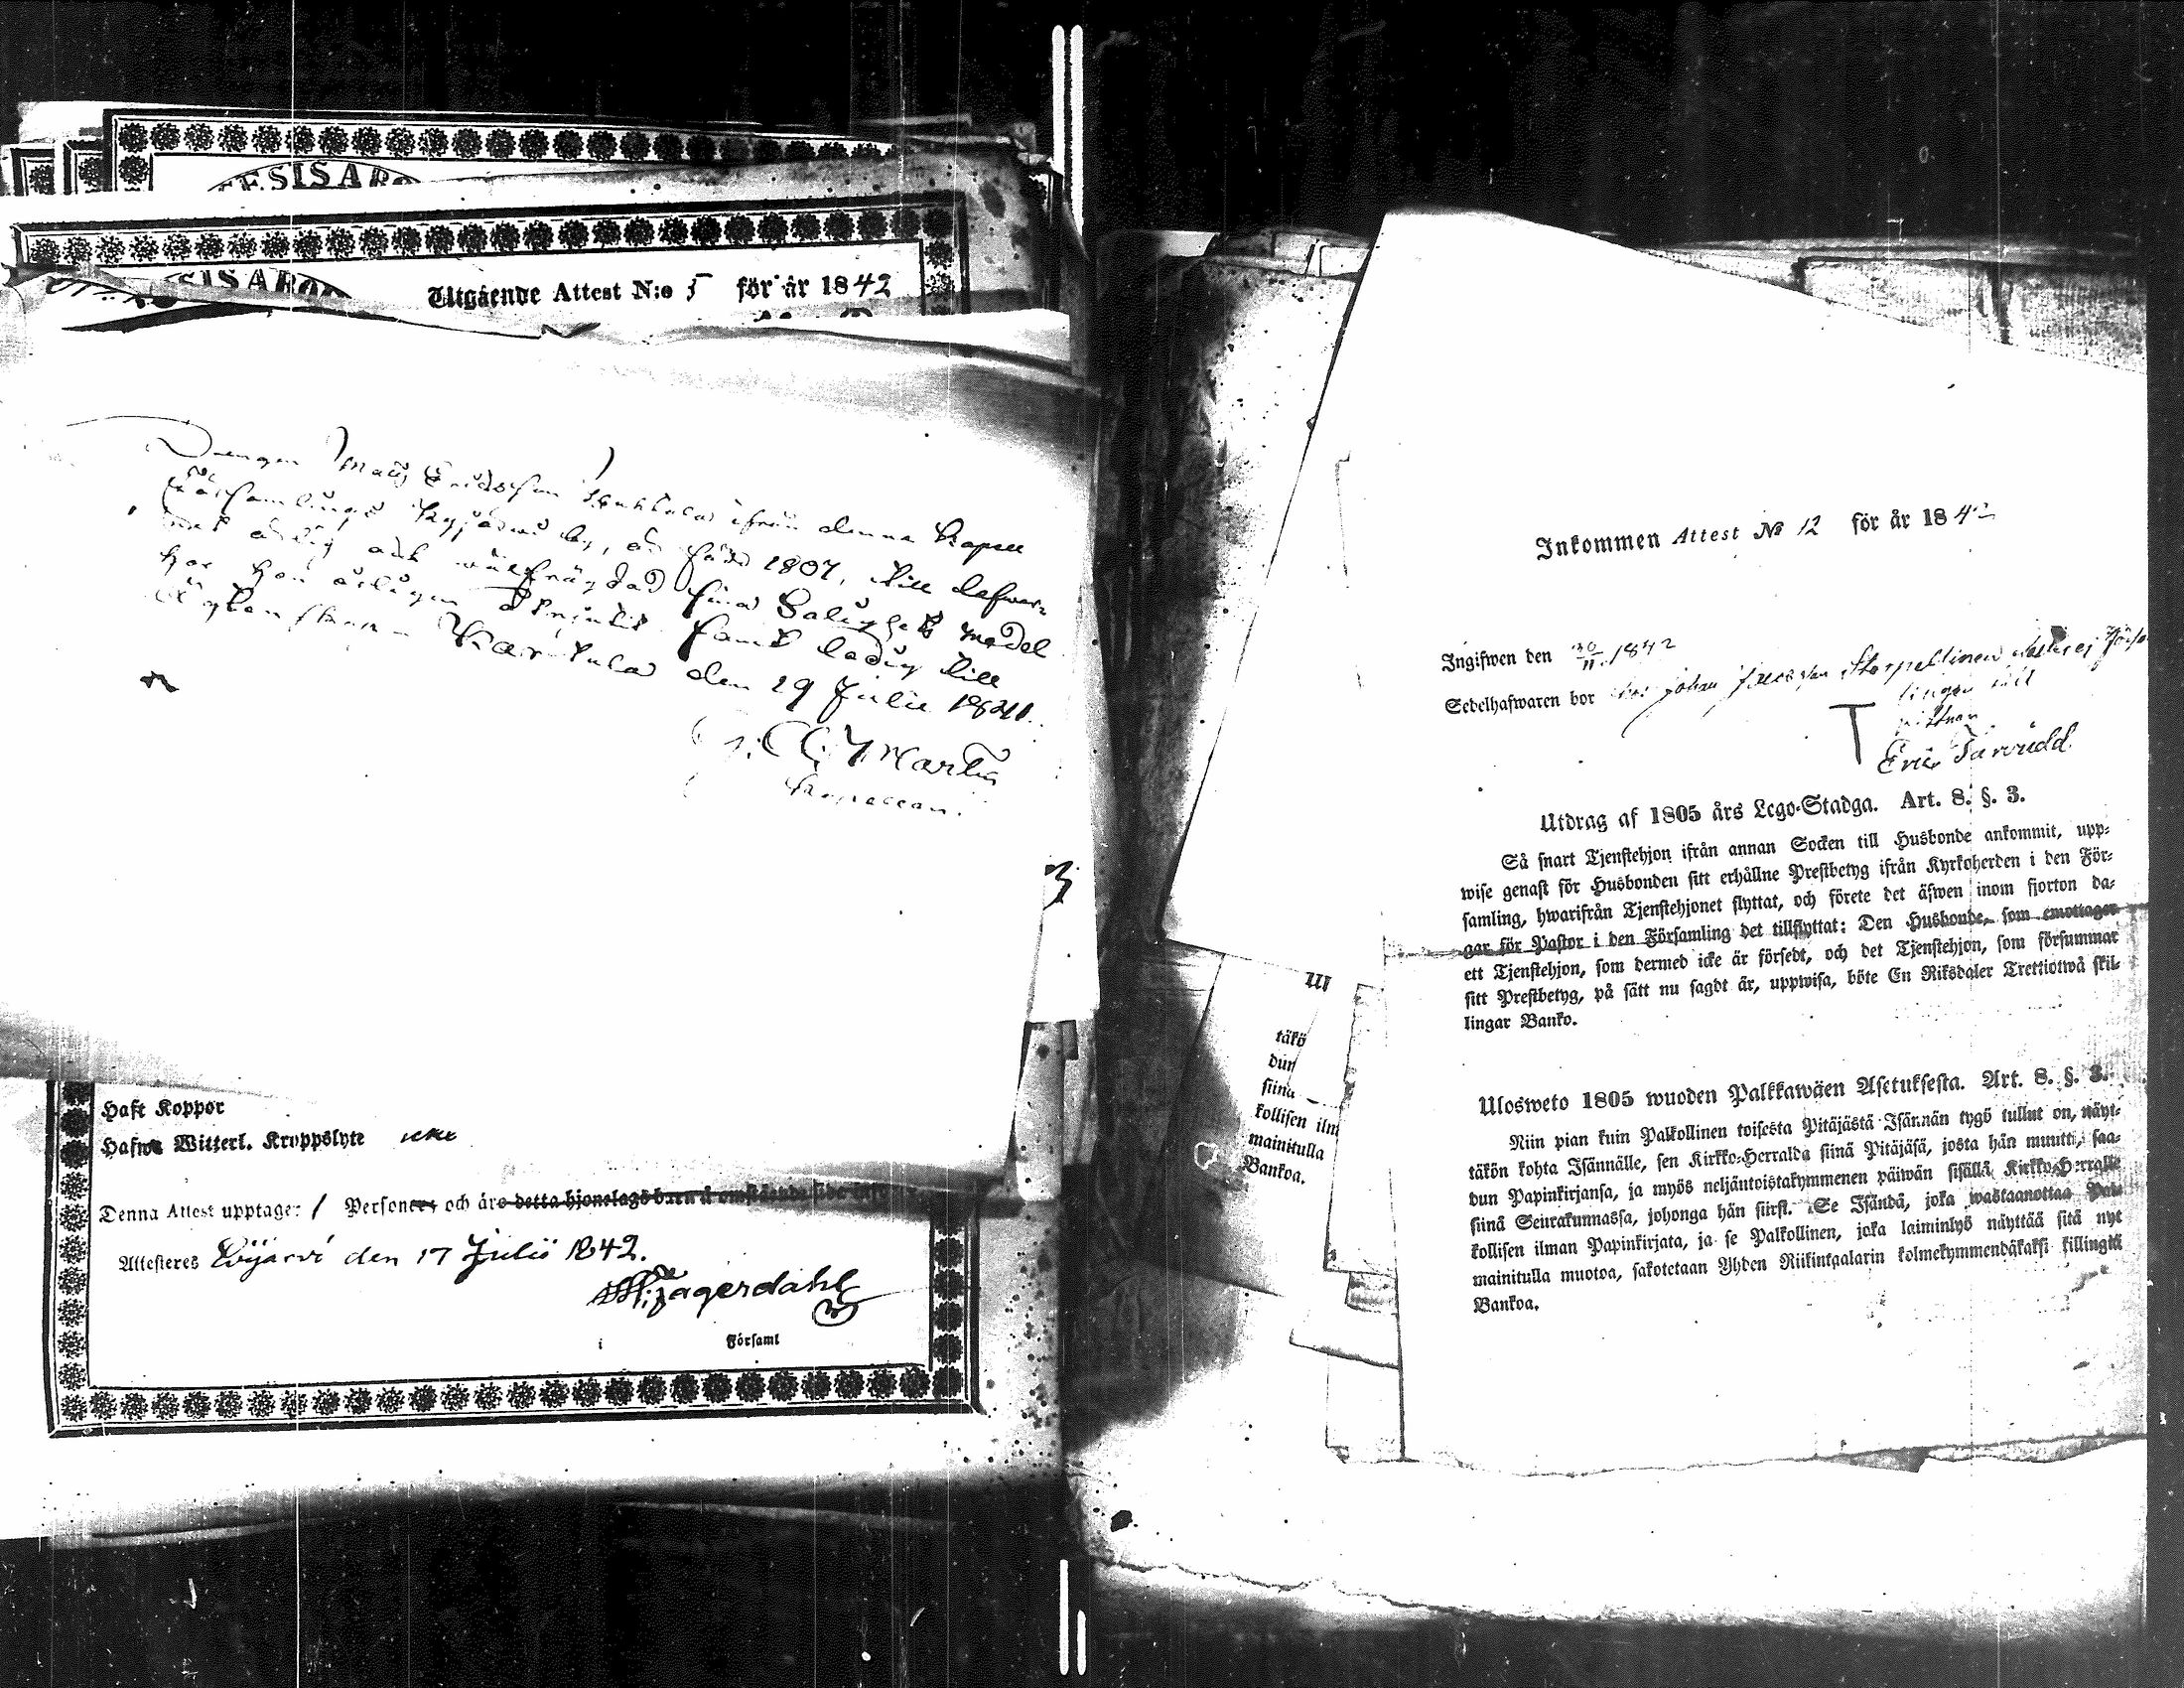 Utgående Attest N:o 5 för år 1842
Drengen Matts Ericsson ifrån denna Capell
Församlings by, är född 1807, till lefver-
net ärlig och wälfrägdad, sina Salighets medel
har han årligen samt ledig till
Ägtenskap. Karstula den 29 Julii 1841.
Martin
Kapellan.
3
Haft Koppor
Hafwa Witterl. Kroppslyte icke
Denna Attest upptager 1 Personer och äro detta hjonelags barn å omstående sida
Attesteres den 17 Julii 1842.
Zagerdahl
i Församl
Inkommen Attest No 12 för år 1842
Ingifwen den 30/11 1842
Sedelhafwaren bor hos Johan
Eric
Utdrag af 1805 års Lego-Stadga. Art. 8. §. 3.
Så snart Tjenstehjon ifrån annan Socken till Husbonde ankommit, upp-
wise genast för Husbonden sitt erhållne Prestbetyg ifrån Kyrkoherden i den För-
samling, hwarifrån Tjenstehjonet flyttat, och förete det äfwen inom fjorton da-
gar för Pastor i den Församling det tillflyttat: Den Husbonde, som emottager
ett Tjenstehjon, som dermed icke är försedt, och det Tjenstehjon, som försummar
sitt Prestbetyg, på sätt nu sagdt är, uppwisa, böte En Riksdaler Trettiotwå skil-
lingar Banko.
Ulosweto 1805 wuoden Palkkawäen Asetuksesta. Art. 8. §. 3.
Niin pian kuin Palkollinen toisesta Pitäjästä Isännän tygö tullut on, näyt-
täkön kohta Isännälle, sen Kirkko-Herralda siinä Pitäjäsä, josta hän muutti, saa-
dun Papinkirjansa, ja myös neljäntoistakymmenen päiwän sisällä Kirkko-Herralle
siinä Seurakunnassa, johonga hän siirsi. Se Isändä, joka wastaanottaa Pal-
kollisen ilman Papinkirjata, ja se Palkollinen, joka laiminlyö näyttää sitä nyt
mainitulla muotoa, sakotetaan Yhden Riikintaalarin kolmekymmendäkaksi killingiä
Bankoa.
täkö
dun
siinä
kollisen ilm
mainitulla
Bankoa.